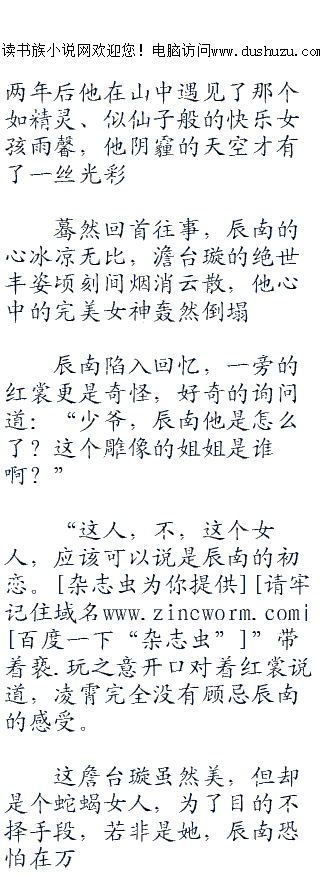 读书族小说网欢迎您！电脑访问www.dushuzu.com
两年后他在山中遇见了那个
如精灵、似仙子般的快乐女
孩雨馨，他阴霾的天空才有
了一丝光彩
蓦然回首往事，辰南的
心冰凉无比，澹台璇的绝世
丰姿顷刻间烟消云散，他心
中的完美女神轰然倒塌
辰南陷入回忆，一旁的
红裳更是奇怪，好奇的询问
道：“少爷，辰南他是怎么
了？这个雕像的姐姐是谁
啊？”
“这人，不，这个女
人，应该可以说是辰南的初
恋。[杂志虫为你提供][请牢
记住域名www.zincworm.com|
[百度一下“杂志虫”]”带
着亵.玩之意开口对着红裳说
道，凌霄完全没有顾忌辰南
的感受。
这詹台璇虽然美，但却
是个蛇蝎女人，为了目的不
择手段，若非是她，辰南恐
怕在万